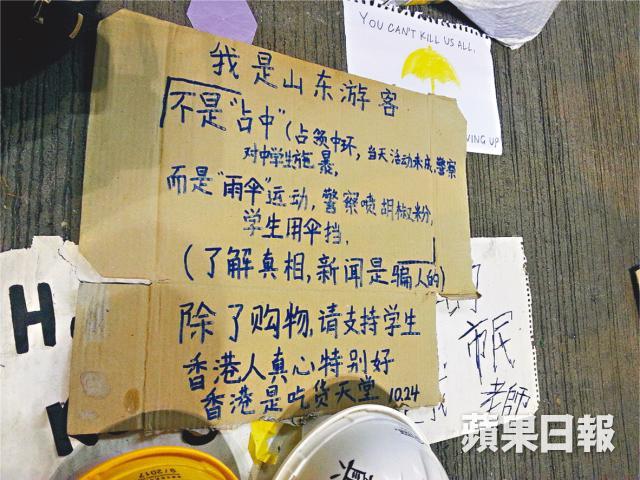 YOU CAN'T KILL US ALL.
VING UP
我是山东游客
不是"占中"(占领中环,当天活动未成,警察
对中学生施暴,
而是"雨伞"运动,警察喷胡椒粉,
学生用伞挡,
(了解真相,新闻是骗人的)
除了购物,请支持学生
香港人真心特别好
香港是吃货天堂 10.24
市民
老師
H
K
9/2017
蘋果日報